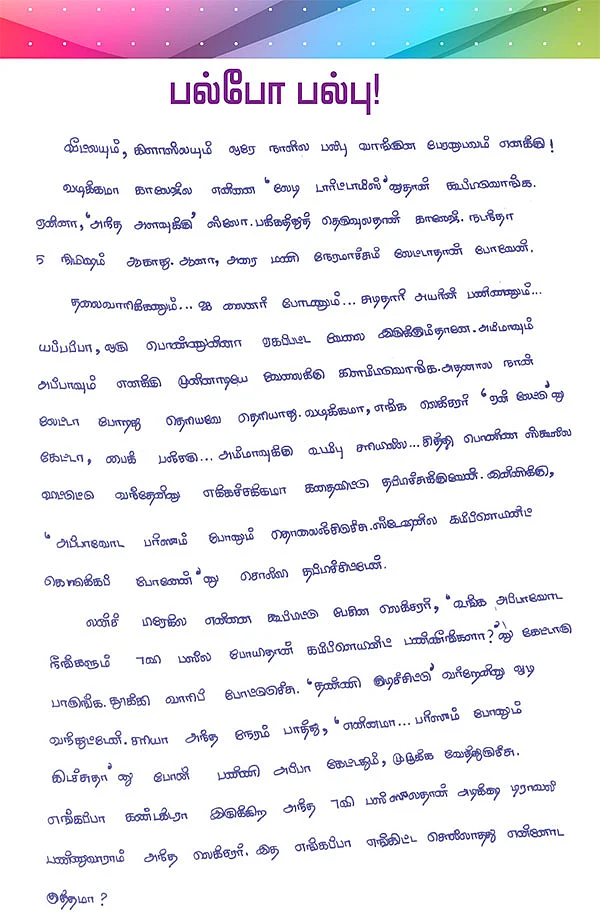 பல்போ பல்பு!
வீட்லயும், கிளாஸ்லயும் ஒரே நாளில பல்பு வாங்கின பேரனுபவம் எனக்கு!
வழக்கமா காலேஜ்ல என்னை 'லேடி டார்ட்டாய்ஸ்'னுதான் கூப்பிடுவாங்க.
ஏன்னா, 'அந்த அளவுக்கு' ஸ்லோ. பக்கத்துத் தெருவுலதான் காலேஜ். நடந்தா
5 நிமிஷம் ஆகாது. ஆனா, அரை மணி நேரமாச்சும் லேட்டாதான் போவேன்.
தலைவாரிக்கணும்... ஐ லைனர் போடணும்... சுடிதார் அயர்ன் பண்ணணும்...
யப்பப்பா, ஒரு பொண்ணுன்னா ஏகப்பட்ட வேலை இருக்கும்தானே. அம்மாவும்
அப்பாவும் எனக்கு முன்னாடியே வேலைக்கு கிளம்பிடுவாங்க. அதனால நான்
லேட்டா போறது தெரியவே தெரியாது. வழக்கமா, எங்க லெக்சரர் 'ஏன் லேட்டு'னு
கேட்டா, பைக் பஞ்சரு... அம்மாவுக்கு உடம்பு சரியில்ல... சித்தி பொண்ண ஸ்கூல்ல
விட்டுட்டு வந்தேன்னு எக்கச்சக்கமா கதைவிட்டு தப்பிச்சுக்குவேன். இன்னிக்கு,
'அப்பாவோட பர்ஸும் போனும் தொலைஞ்சிடுச்சு. ஸ்டேஷன்ல கம்ப்ளெயின்ட்
கொடுக்கப் போனேன்'னு சொல்லி தப்பிச்சிட்டேன்.
லன்ச் பிரேக்ல என்னை கூப்பிட்டு பேசின லெக்சரர், 'உங்க அப்பாவோட
நீங்களும் 7வி பஸ்ல போய்தான் கம்ப்ளெயின்ட் பண்ணீங்களா?'னு கேட்டாரு
பாருங்க. தூக்கி வாரிப் போட்டுடுச்சு. 'தண்ணி குடிச்சிட்டு' வர்றேன்னு ஓடி
வந்துட்டேன். சரியா அந்த நேரம் பாத்து, 'என்னம்மா... பர்ஸும் போனும்
கிடச்சுதா'னு போன் பண்ணி அப்பா கேட்டதும், முழுக்க வேத்துடுச்சு.
எங்கப்பா கண்டக்டரா இருக்கிற அந்த 7வி பஸ்ஸுலதான் அடிக்கடி டிராவல்
பண்ணுவாராம் அந்த லெக்சரர். இத எங்கப்பா எங்கிட்ட சொல்லாதது என்னோட
குத்தமா?